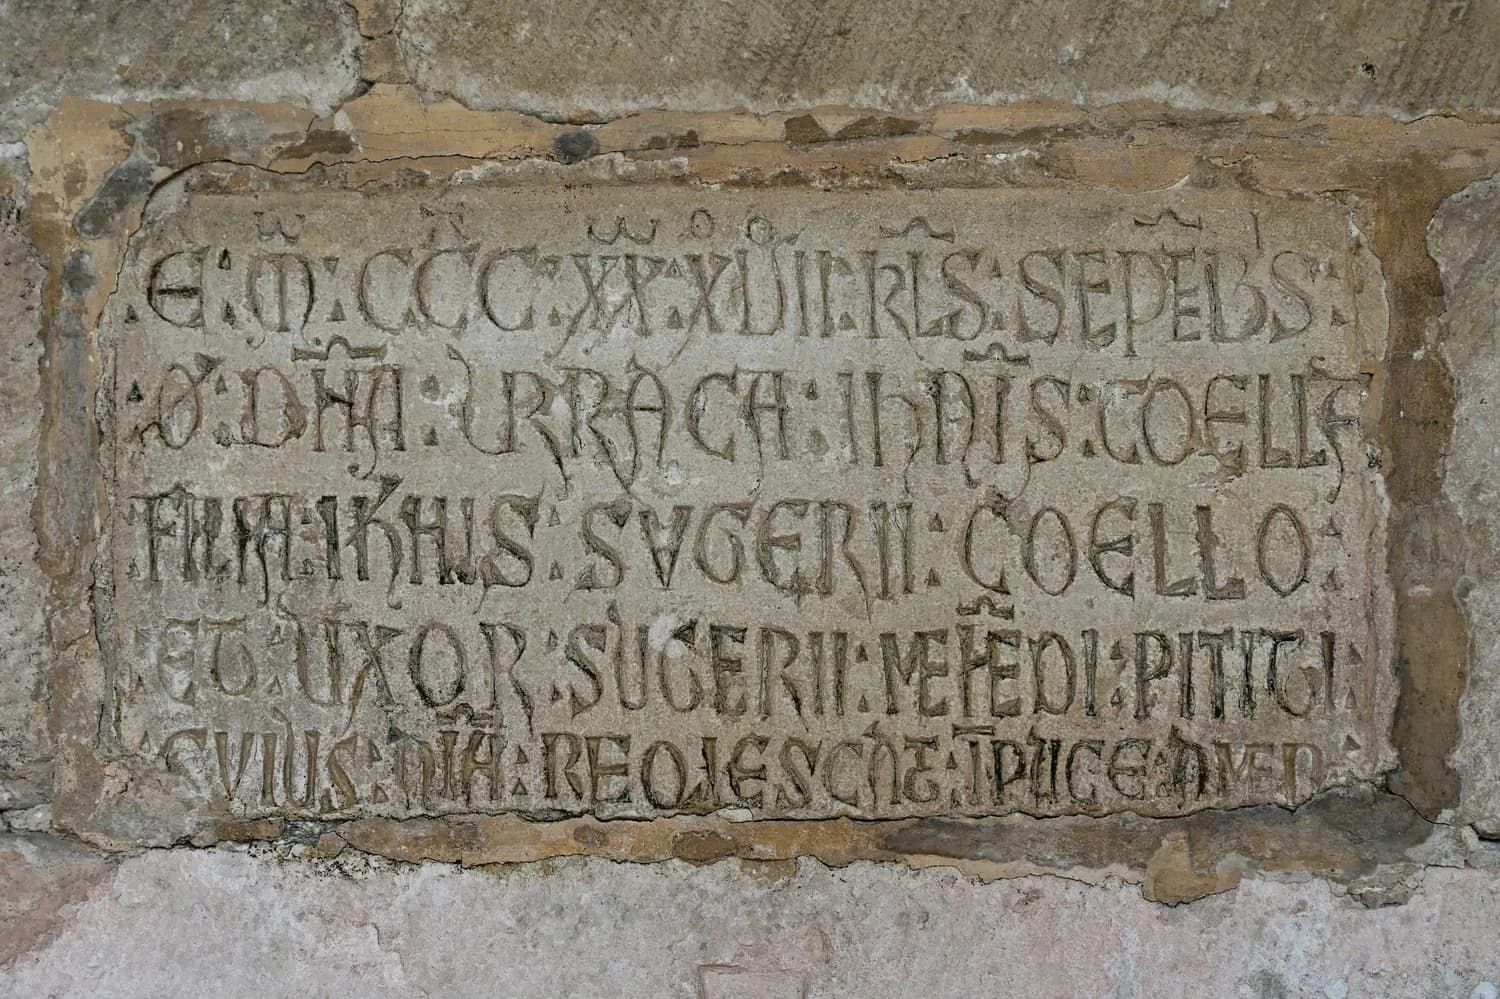 E : M : CCC : XX : XVII : KLS : SEPEBS :
: O : DNA : URRACA : IHNIS : COELLE
FILIA : IHNIS : SUGERII : COELLO :
ET : UXOR : SUGERII : MENEDI : PITITI :
CUIUS : NIA : REQIESCAT : IPACE : AMEN